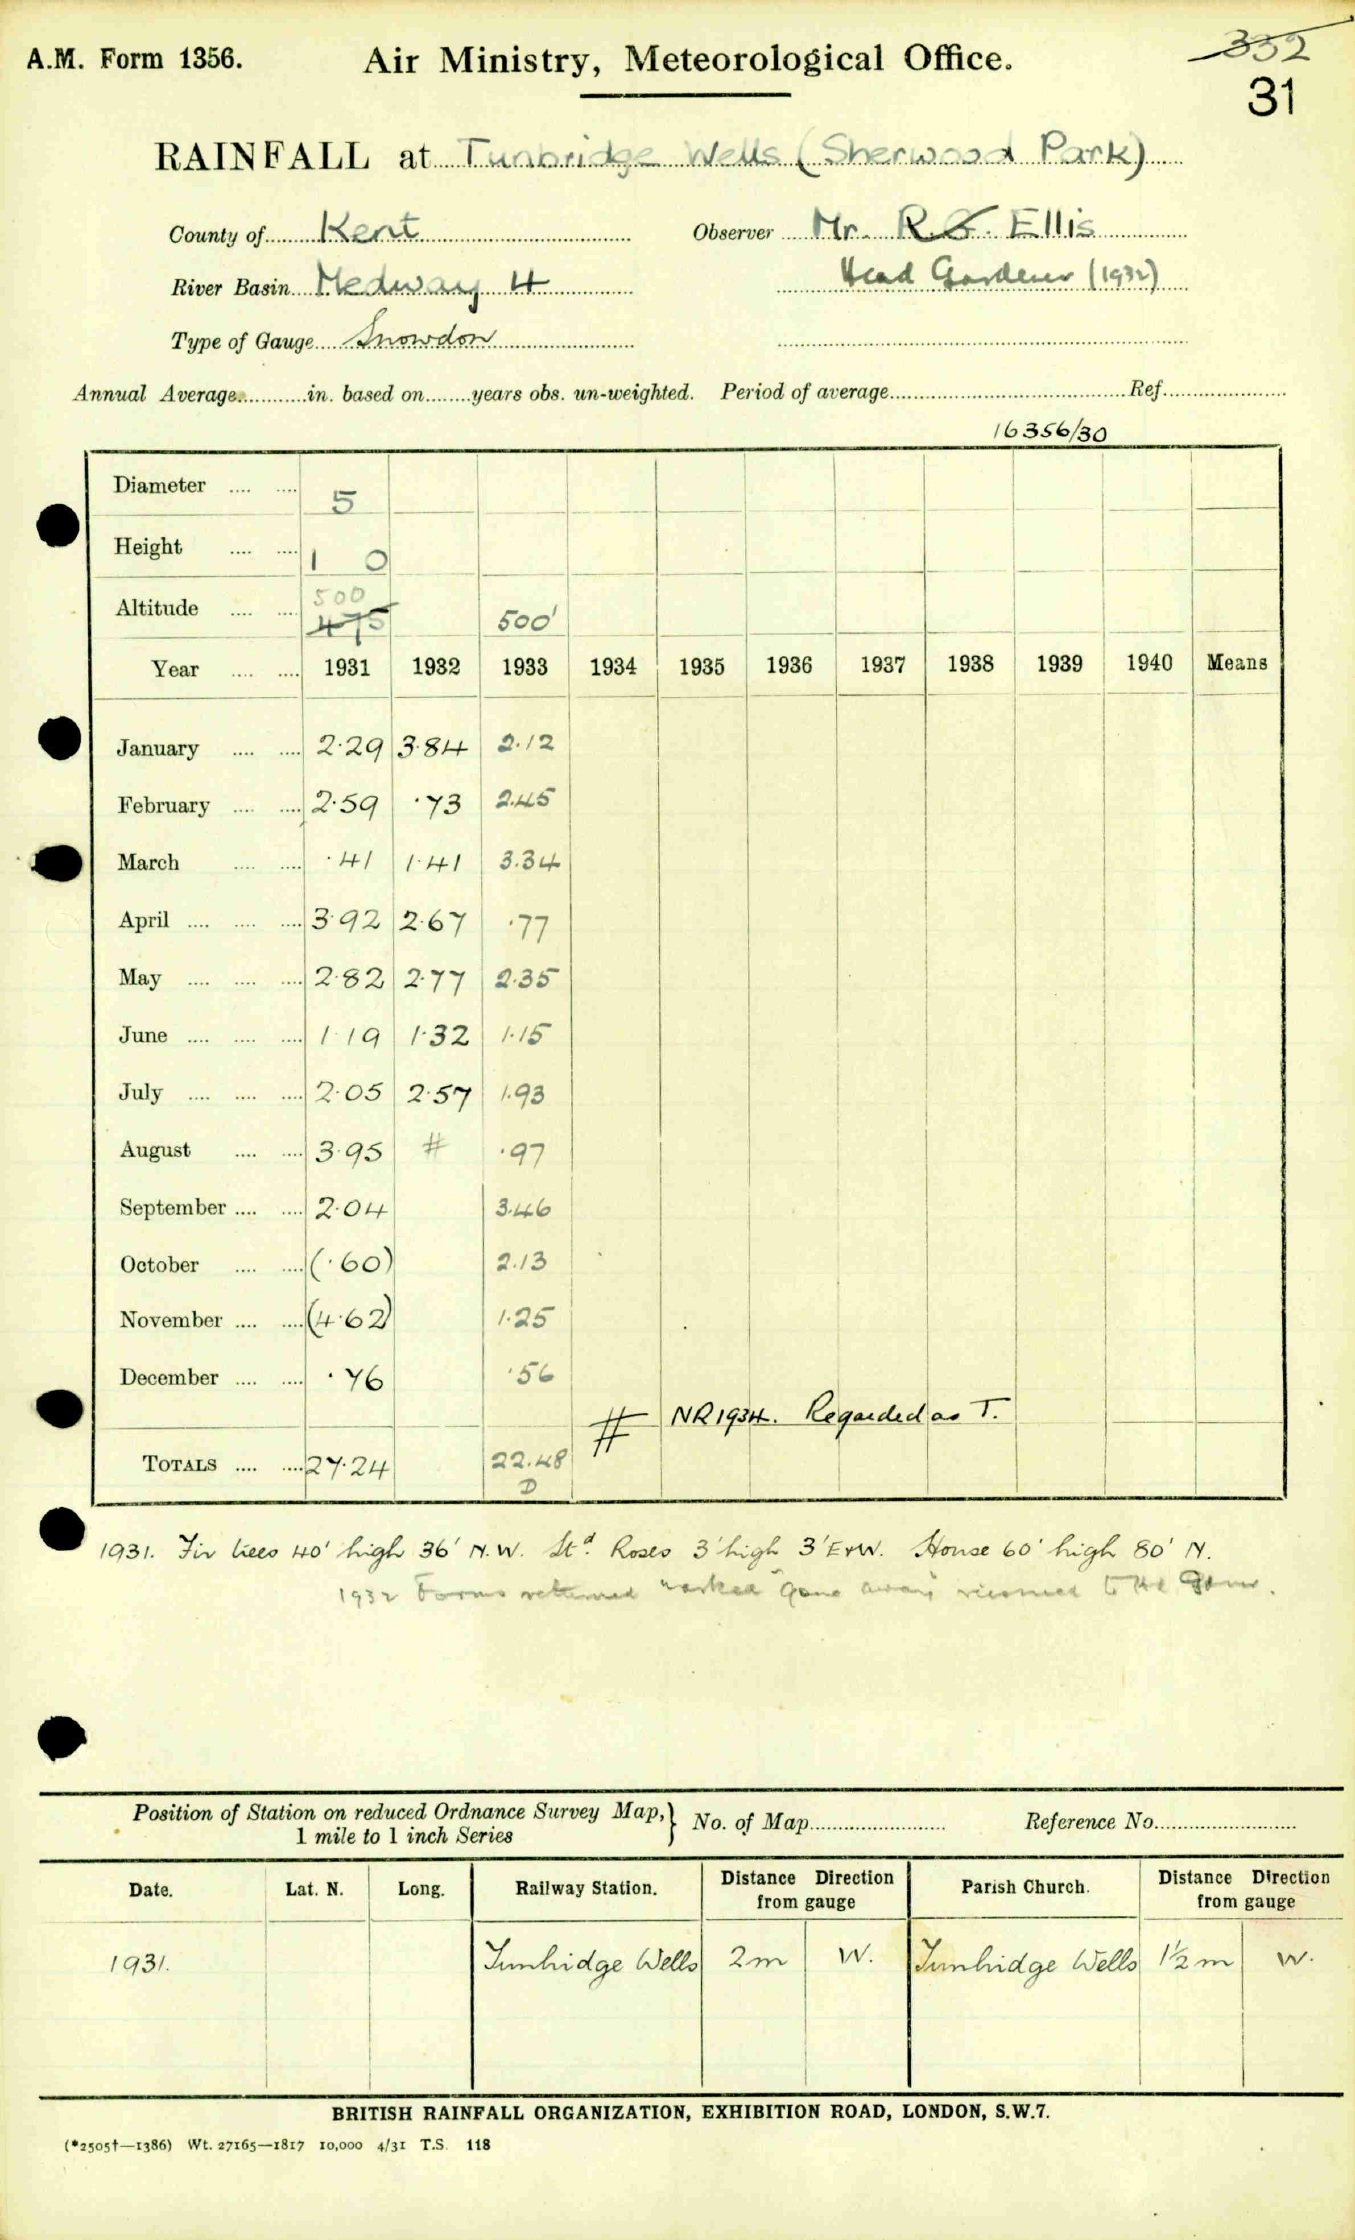 A.M. Form 1356.
Air Ministry, Meteorological Office.
332
31
RAINFALL at Tunbridge Wells (Sherwood Park)
County of Kent Observer Mr. R.G. Ellis
River Basin Medway 4 Head Gardener (1932)
Type of Gauge Snowdon
Annual Average in. based on years obs. un-weighted. Period of average Ref.
16356/30
Diameter 5
Height 1 0
500
Altitude 475 500'
Year 1931 1932 1933 1934 1935 1936 1937 1938 1939 1940 Means
January 2.29 3.84 2.12
February 2.59 .73 2.45
March .41 1.41 3.34
April 3.92 2.67 .77
May 2.82 2.77 2.35
June 1.19 1.32 1.15
July 2.05 2.57 1.93
August 3.95 # .97
September 2.04 3.46
October (.60) 2.13
November (4.62) 1.25
December .76 .56
# NR 1934. Regarded as T.
TOTALS 27.24 22.48
D
1931. Fir trees 40' high 36' N.W. Std. Roses 3' high 3' E+W. House 60' high 80' N.
1932 Forms returned marked "gone away"
Position of Station on reduced Ordnance Survey Map, } No. of Map Reference No.
1 mile to 1 inch Series
Date. Lat. N. Long. Railway Station. Distance Direction from gauge Parish Church. Distance Direction from gauge
1931. Tunbridge Wells 2m W. Tunbridge Wells 1½ m W.
BRITISH RAINFALL ORGANIZATION, EXHIBITION ROAD, LONDON, S.W.7.
(*2505†—1386) Wt. 27165—1817 10,000 4/31 T.S. 118